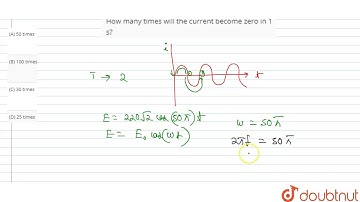 How many times will the current become zero in 1
s?
(A) 50 times
(B) 100 times
(C) 30 times
(D) 25 times
i
t
T → 2
E = 220√2 cos (50π) t
E = E₀ cos (ωt)
ω = 50π
2πf = 50π
doubtnut